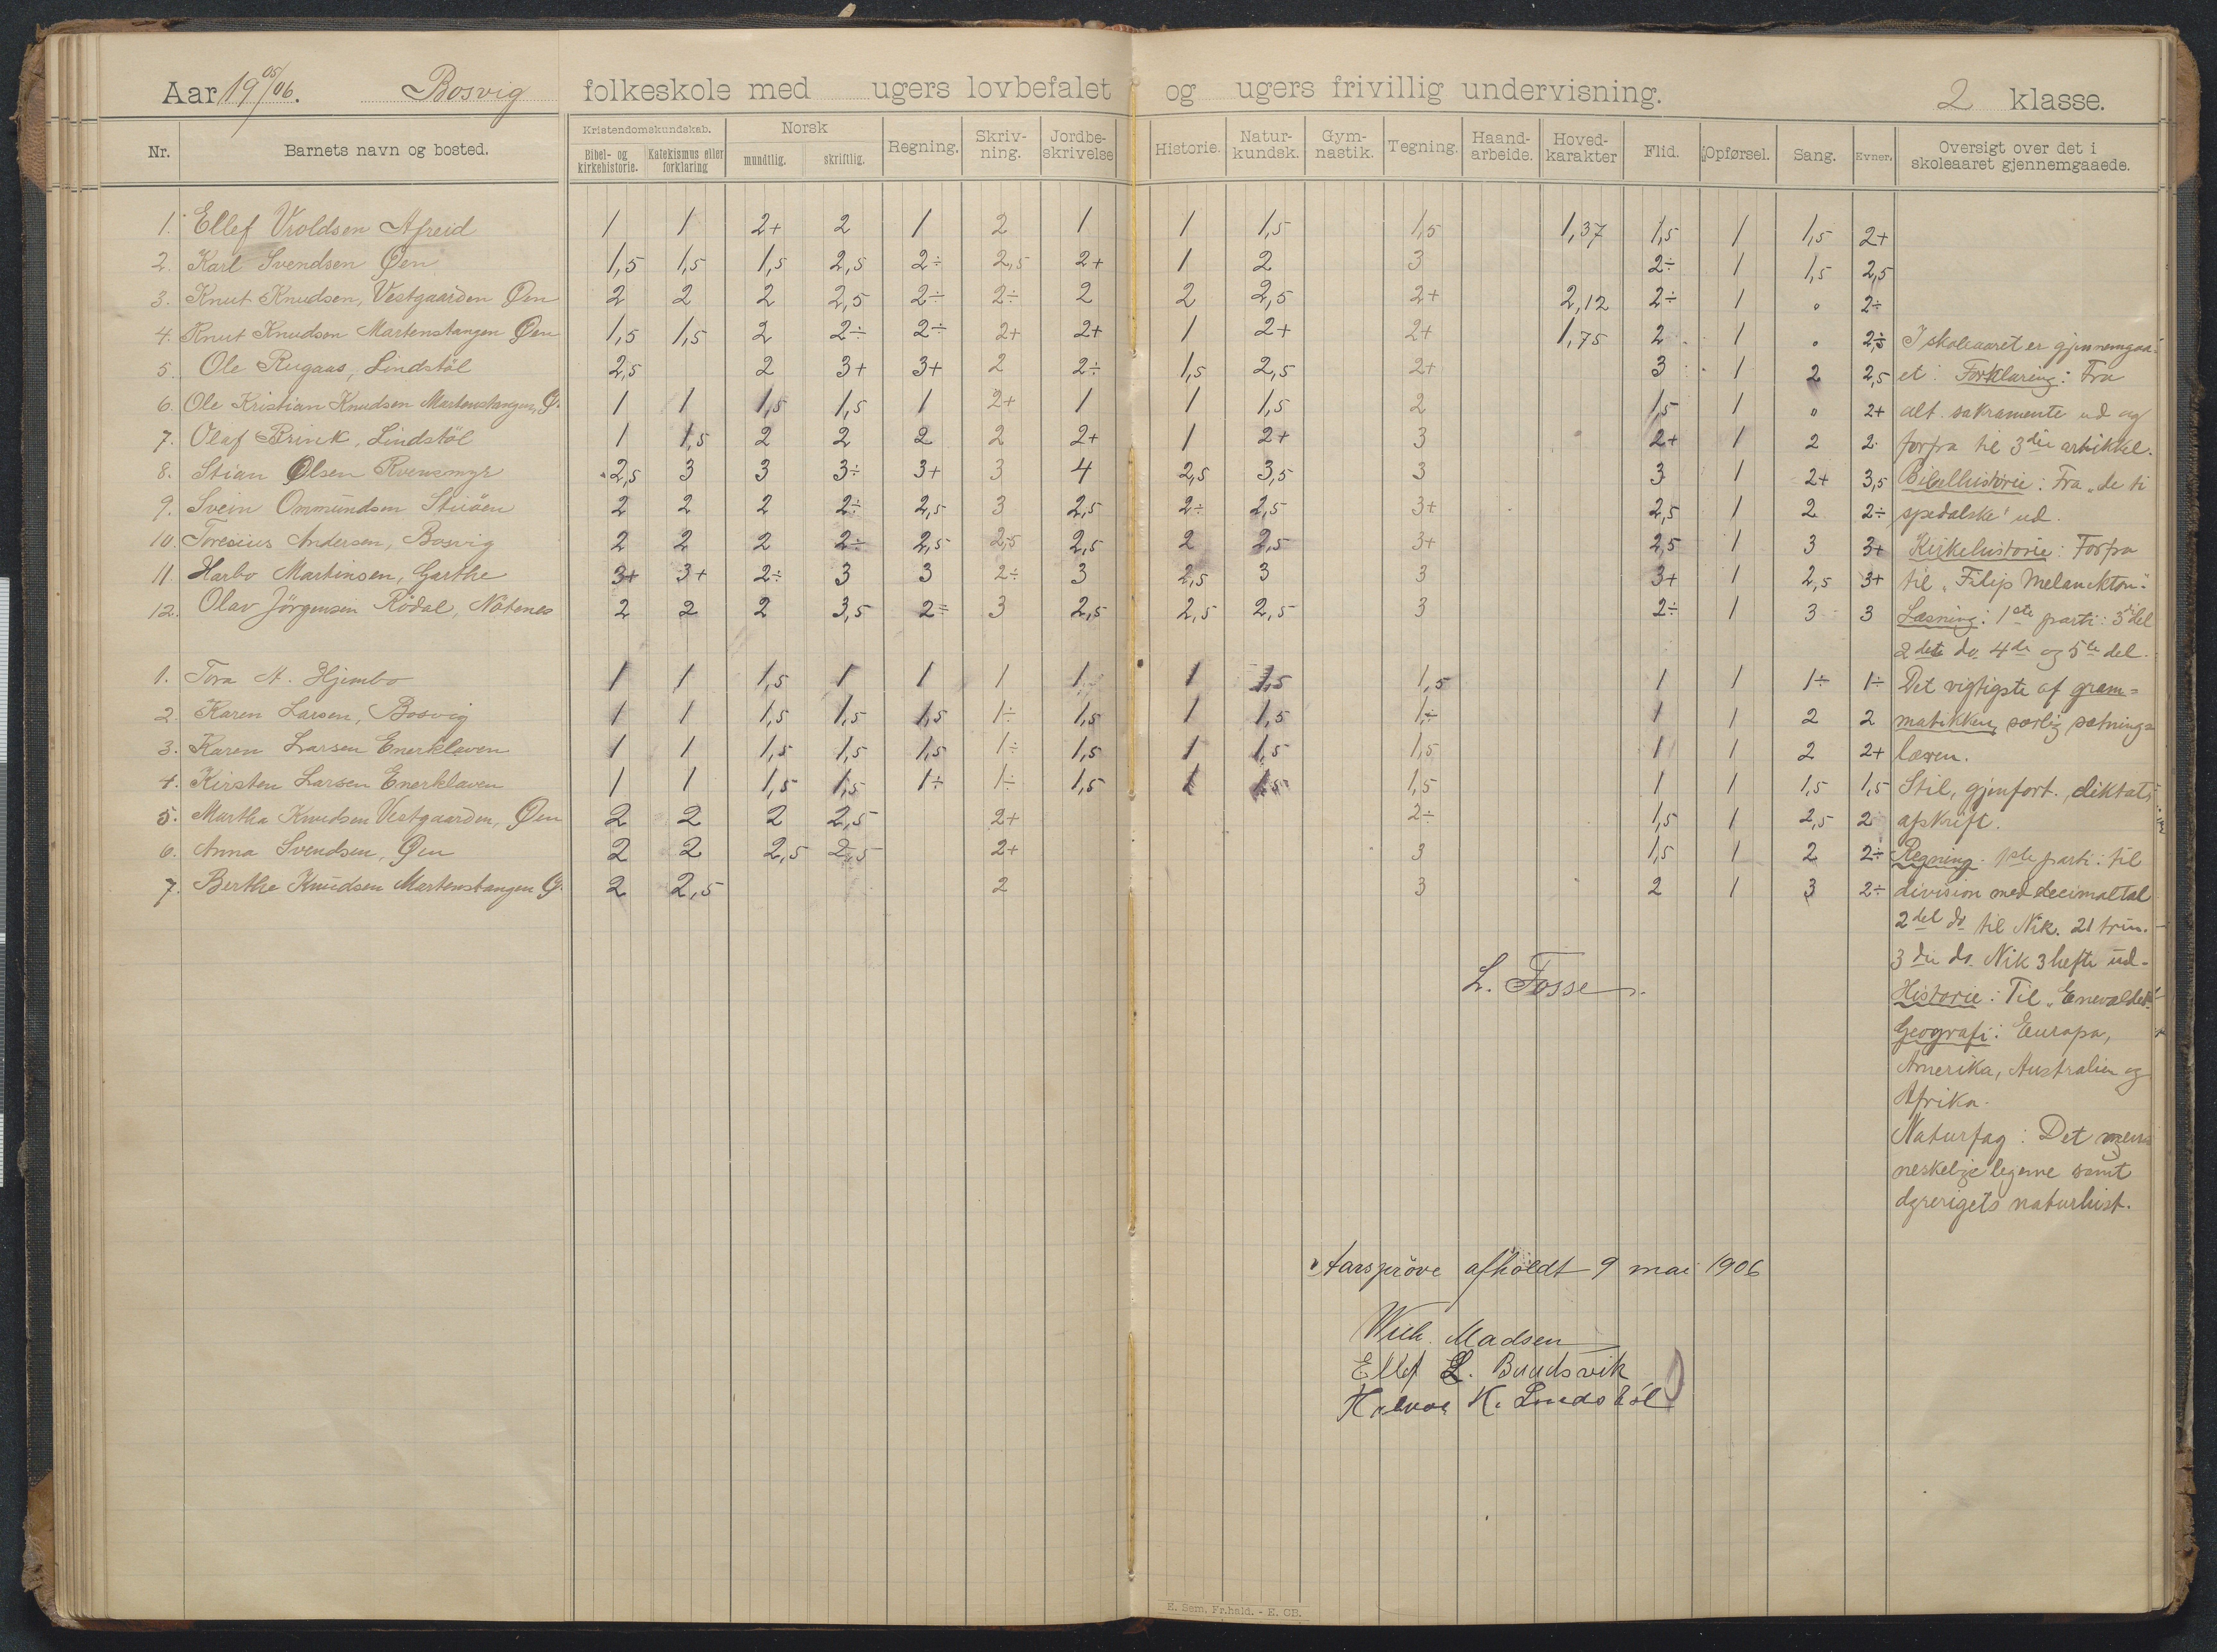 Aar 19 05/06. Bosvig folkeskole med ugers lovbefalet og ugers frivillig undervisning. 2 klasse.
Nr. Barnets navn og bosted. Kristendomskundskab. Bibel- og kirkehistorie. Katekismus eller forklaring Norsk mundtlig. skriftlig. Regning. Skriv-ning. Jordbe-skrivelse Historie. Natur-kundsk. Gym-nastik. Tegning. Haand-arbeide. Hoved-karakter Flid. Opførsel. Sang. Evner. Oversigt over det i skoleaaret gjennemgaaede.
1. Ellef Vroldsen Afreid 1 1 2+ 2 1 2 1 1 1,5 1,5 1,37 1,5 1 1,5 2+
2. Karl Svendsen Øen 1,5 1,5 1,5 2,5 2÷ 2,5 2+ 1 2 3 2÷ 1 1,5 2,5
3. Knut Knudsen, Vestgaarden Øen 2 2 2 2,5 2÷ 2÷ 2 2 2,5 2+ 2,12 2÷ 1 0 2÷
4. Knut Knudsen Martenstangen Øen 1,5 1,5 2 2÷ 2÷ 2+ 2+ 1 2+ 2+ 1,75 2 1 0 I skoleaaret er gjennemgaa-
5. Ole Rugaas, Lindstöl 2,5 2 3+ 3+ 2 2÷ 1,5 2,5 2+ 3 1 2 2,5 et: Forklaring: Fra
6. Ole Kristian Knudsen Martenstangen, Ø. 1 1 1,5 1,5 1 2+ 1 1 1,5 2 1,5 1 0 2+ alt. sakramente ud og
7. Olaf Brink, Lindstöl 1 1,5 2 2 2 2 2+ 1 2+ 3 2+ 1 2 2 forfra til 3die artikkel.
8. Stian Olsen Rvensmyr 2,5 3 3 3÷ 3+ 3 4 2,5 3,5 3 3 1 2+ 3,5 Bibelhistorie: Fra "de ti
9. Svein Ommundsen Stiöen 2 2 2 2÷ 2,5 3 2,5 2÷ 2,5 3+ 2,5 1 2 2÷ spedalske" ud.
10. Toresius Andersen, Bosvig 2 2 2 2÷ 2,5 2,5 2,5 2 2,5 3+ 2,5 1 3 3+ Kirkehistorie: Forfra
11. Harbo Martinsen, Garthe 3+ 3+ 2÷ 3 3 2÷ 3 2,5 3 3 3+ 1 2,5 3+ til "Filip Melanckton".
12. Olav Jörgensen Rödal, Natenes 2 2 2 3,5 2÷ 3 2,5 2,5 2,5 3 2÷ 1 3 3 Læsning: 1ste parti: 3die del
2det do 4de og 5te del.
1. Tora A. Hjembo 1 1 1,5 1 1 1 1 1 1,5 1,5 1 1 1÷ 1÷ Det vigtigste af gram=
2. Karen Larsen, Bosvig 1 1 1,5 1,5 1,5 1÷ 1,5 1 1,5 1÷ 1 1 2 2 matikken særlig sætnings
3. Karen Larsen Enerklaven 1 1 1,5 1,5 1,5 1÷ 1,5 1 1,5 1,5 1 1 2 2+ læren.
4. Kirsten Larsen Enerklaven 1 1 1,5 1,5 1÷ 1÷ 1,5 1 1,5 1,5 1 1 1,5 1,5 Stil, gjenfort., diktat,
5. Martha Knudsen Vestgaarden, Øen 2 2 2 2,5 2+ 2÷ 1,5 1 2,5 2 afskrift.
6. Anna Svendsen, Øen 2 2 2,5 2,5 2+ 3 1,5 1 2 2÷ Regning. 1ste parti: til
7. Berthe Knudsen Martenstangen Ø. 2 2,5 2 3 2 1 3 2÷ division med decimaltal
2del do til Nik. 21 trin.
3die do. Nik 3 hefte ud.
L. Fosse.
Historie: Til "Enevældet".
Geografi: Europa,
Amerika, Australien og
Afrika.
Naturfag: Det men
neskelige legeme samt
dyrerigets naturhist.
Aarspröve afholdt 9 mai 1906
Wilh. Madsen
Ellef L. Buudsvik
K. Lindstöl
E. Sem, Fr.hald. - E. CB.